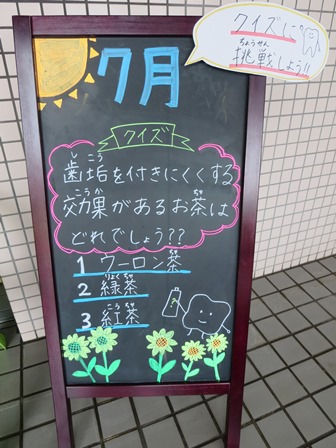 クイズに
挑戦しよう!!
ちょうせん
7月
クイズ
歯垢を付きにくくする
しこう
効果があるお茶は
こうか ちゃ
どれでしょう??
1 ウーロン茶
ちゃ
2 緑茶
りょくちゃ
3 紅茶
こうちゃ